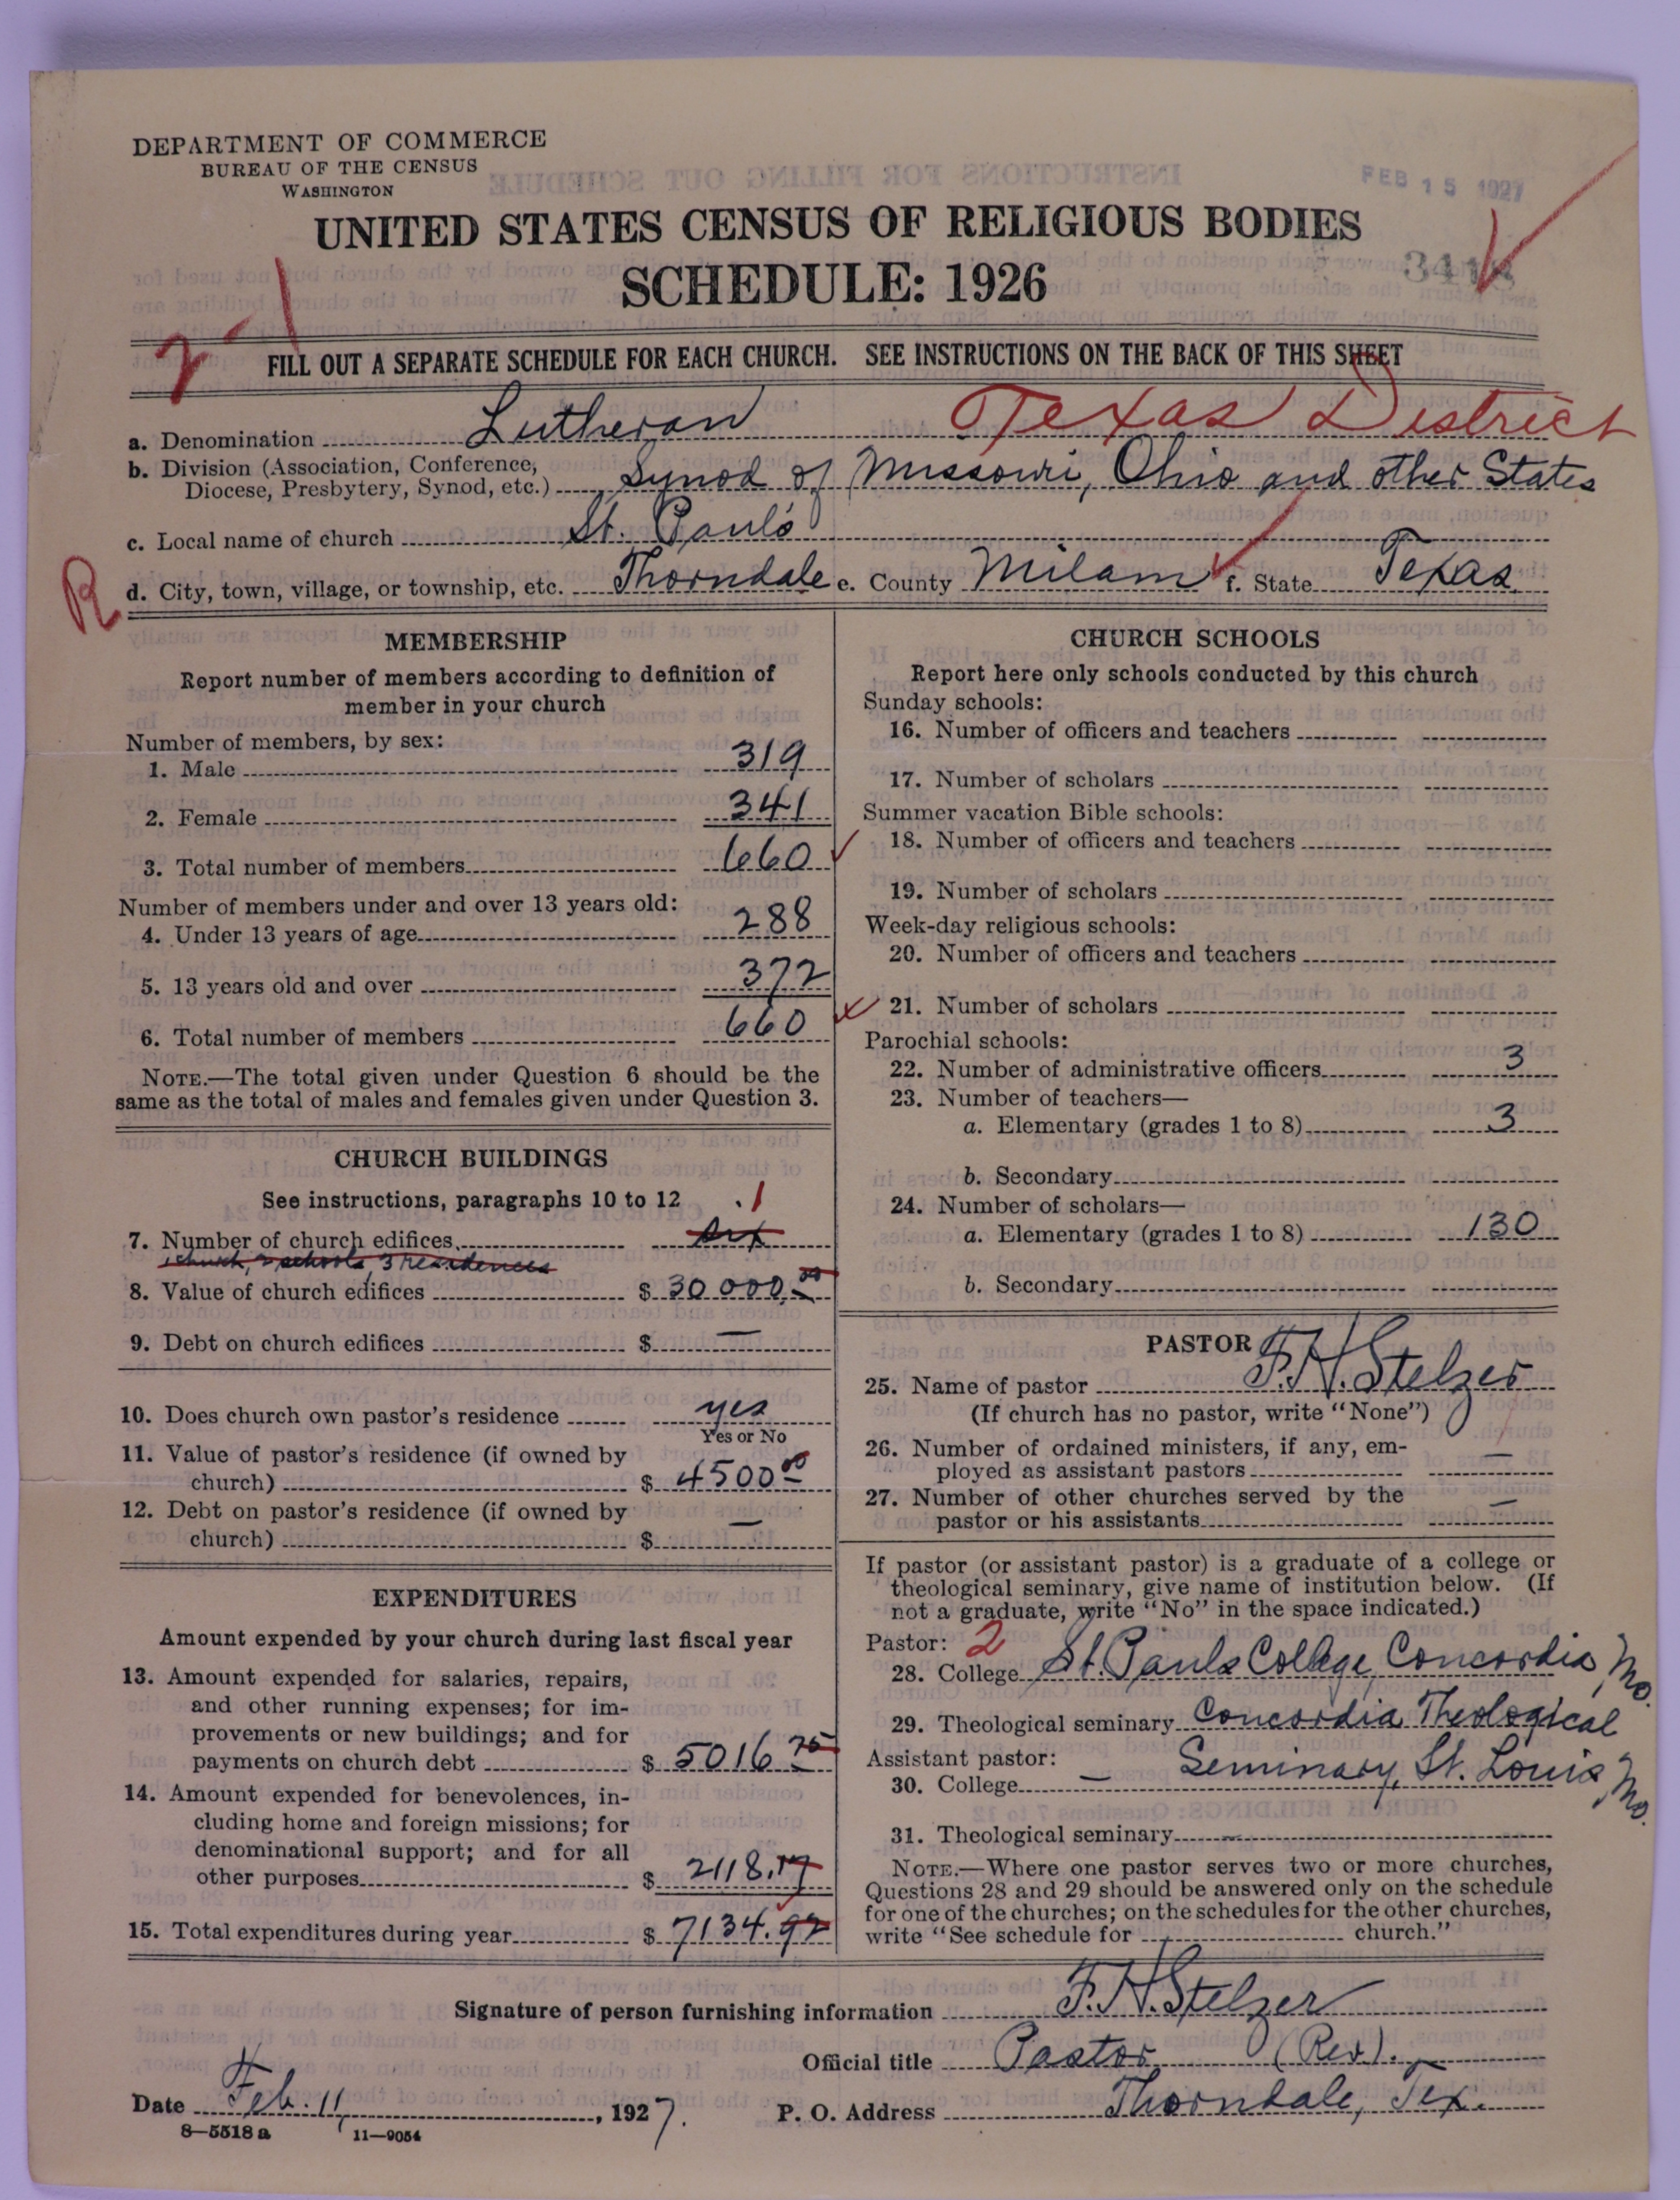 DEPARTMENT OF COMMERCE
BUREAU OF THE CENSUS
WASHINGTON
FEB 15 1927
UNITED STATES CENSUS OF RELIGIOUS BODIES
SCHEDULE: 1926
2-1
FILL OUT A SEPARATE SCHEDULE FOR EACH CHURCH. SEE INSTRUCTIONS ON THE BACK OF THIS SHEET
a. Denomination Lutheran Texas District
b. Division (Association, Conference,
Diocese, Presbytery, Synod, etc.) Synod of Missouri, Ohio and other States
c. Local name of church St. Paul's
R d. City, town, village, or township, etc. Thorndale e. County Milam f. State Texas
MEMBERSHIP
Report number of members according to definition of
member in your church
Number of members, by sex:
1. Male 319
2. Female 341
3. Total number of members 660
Number of members under and over 13 years old:
4. Under 13 years of age 288
5. 13 years old and over 372
6. Total number of members 660
NOTE.—The total given under Question 6 should be the
same as the total of males and females given under Question 3.
CHURCH BUILDINGS
See instructions, paragraphs 10 to 12 1
7. Number of church edifices six
1 church, 2 schools, 3 residences
8. Value of church edifices $ 30 000.00
9. Debt on church edifices $ —
10. Does church own pastor's residence yes
Yes or No
11. Value of pastor's residence (if owned by
church) $ 4500 00
12. Debt on pastor's residence (if owned by
church) $ —
EXPENDITURES
Amount expended by your church during last fiscal year
13. Amount expended for salaries, repairs,
and other running expenses; for im-
provements or new buildings; and for
payments on church debt $ 5016 75
14. Amount expended for benevolences, in-
cluding home and foreign missions; for
denominational support; and for all
other purposes $ 2118.17
15. Total expenditures during year $ 7134.92
CHURCH SCHOOLS
Report here only schools conducted by this church
Sunday schools:
16. Number of officers and teachers
17. Number of scholars
Summer vacation Bible schools:
18. Number of officers and teachers
19. Number of scholars
Week-day religious schools:
20. Number of officers and teachers
21. Number of scholars
Parochial schools:
22. Number of administrative officers 3
23. Number of teachers—
a. Elementary (grades 1 to 8) 3
b. Secondary
24. Number of scholars—
a. Elementary (grades 1 to 8) 130
b. Secondary
PASTOR
25. Name of pastor F. H. Stelzer
(If church has no pastor, write "None")
26. Number of ordained ministers, if any, em-
ployed as assistant pastors —
27. Number of other churches served by the
pastor or his assistants —
If pastor (or assistant pastor) is a graduate of a college or
theological seminary, give name of institution below. (If
not a graduate, write "No" in the space indicated.)
Pastor: 2
28. College St. Pauls College, Concordia, Mo.
29. Theological seminary Concordia Theological
Assistant pastor: Seminary, St. Louis, Mo.
30. College —
31. Theological seminary —
NOTE.—Where one pastor serves two or more churches,
Questions 28 and 29 should be answered only on the schedule
for one of the churches; on the schedules for the other churches,
write "See schedule for church."
Signature of person furnishing information F. H. Stelzer
Official title Pastor (Rev).
Date Feb. 11, 1927. P. O. Address Thorndale, Tex.
8—5518 a 11—9054